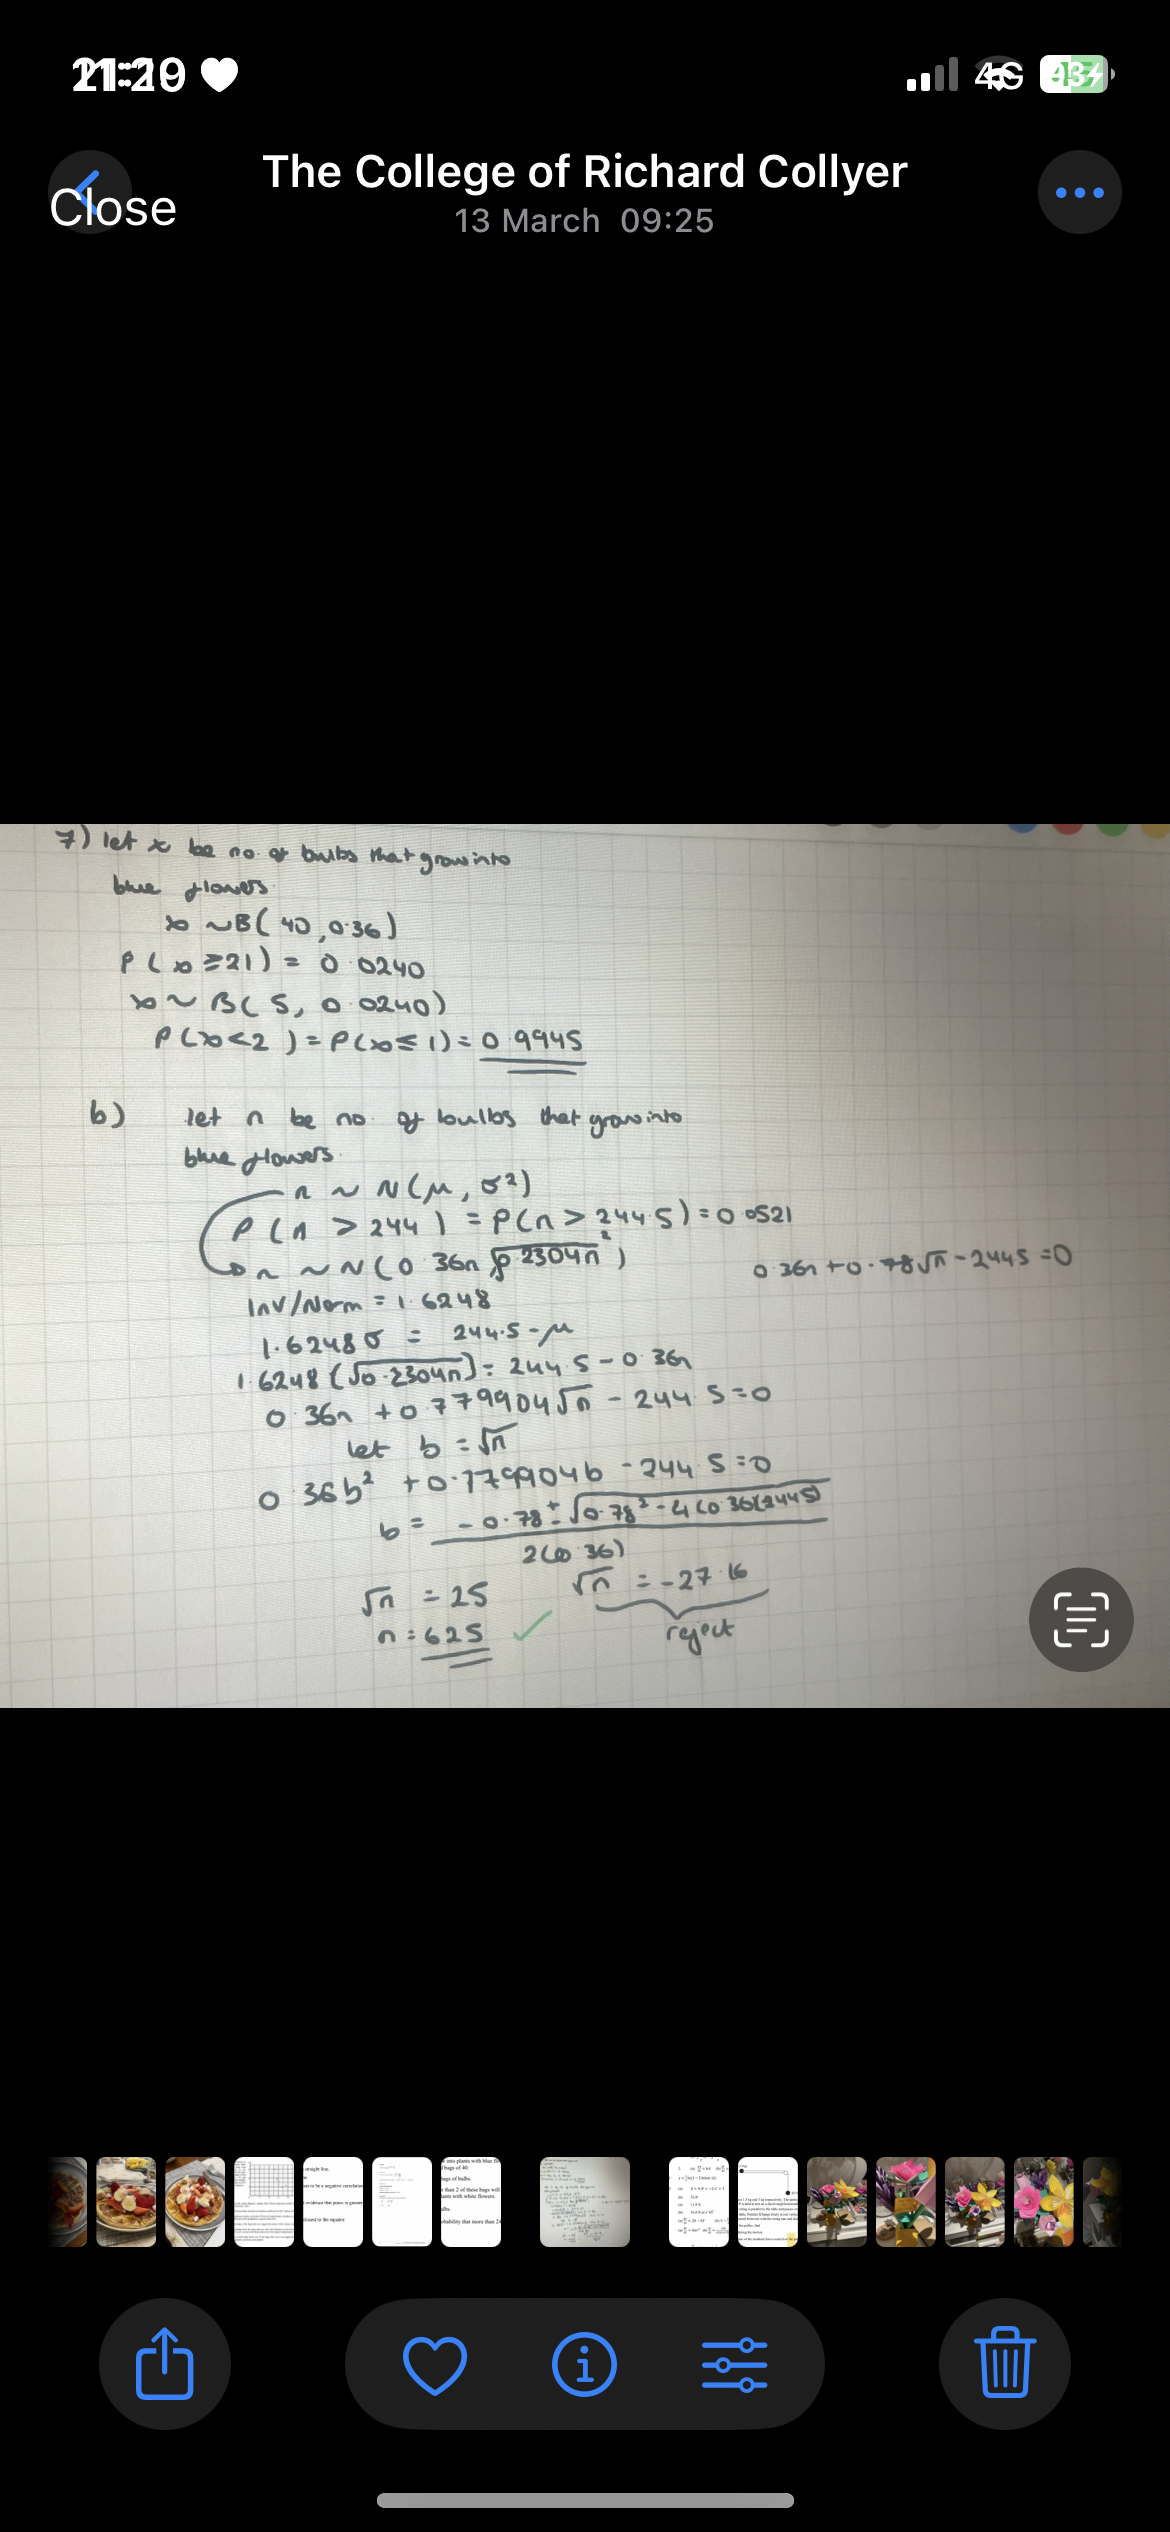 The College of Richard Collyer
13 March 09:25
Close
4G
7) let x be no. of bulbs that grow into
blue flowers.
x ~B( 40,0.36)
P(x ≥21) = 0.0240
x ~ B(5, 0.0240)
P(x<2) = P(x≤1) = 0.9945
b) let n be no. of bulbs that grow into
blue flowers.
n ~ N(μ, σ²)
P(n > 244) = P(n > 244.5) = 0.0521
n ~ N(0.36n, √0.2304n²)
0.36n + 0.78√n - 244.5 = 0
Inv/Norm = 1.6248
1.6248σ = 244.5 - μ
1.6248(√0.2304n) = 244.5 - 0.36n
0.36n + 0.779904√n - 244.5 = 0
let b = √n
0.36b² + 0.779904b - 244.5 = 0
b = -0.78 ± √0.78² - 4(0.36)(244.5)
2(0.36)
√n = 25 √n = -27.16
n = 625 ✓ reject